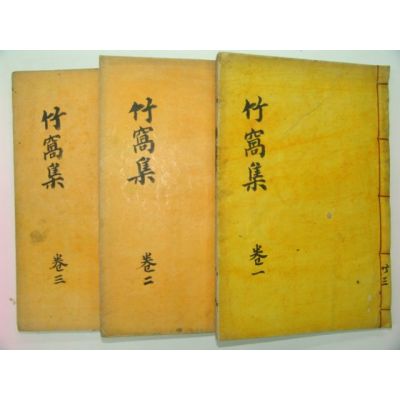 竹窩集
卷一
竹三
竹窩集
卷二
竹窩集
卷三